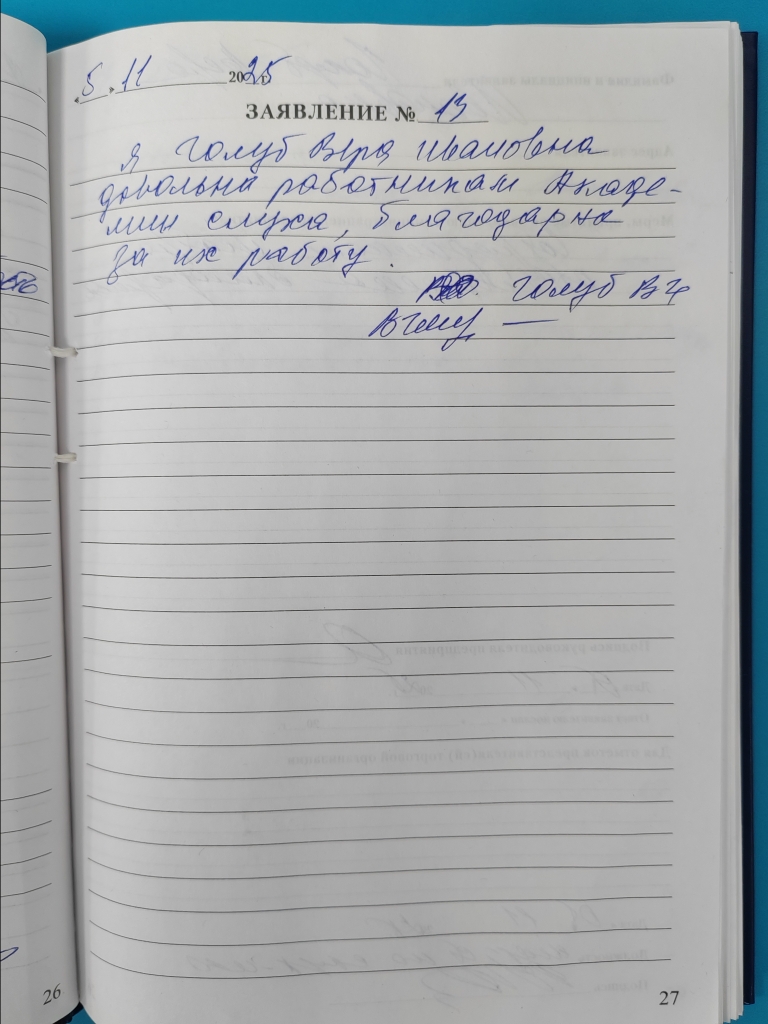 «5» 11 2025 г.
ЗАЯВЛЕНИЕ № 13
Я Голуб Вера Ивановна
довольна работникам Академии
мии слуха, благодарна
за их работу.
Голуб В
26
27